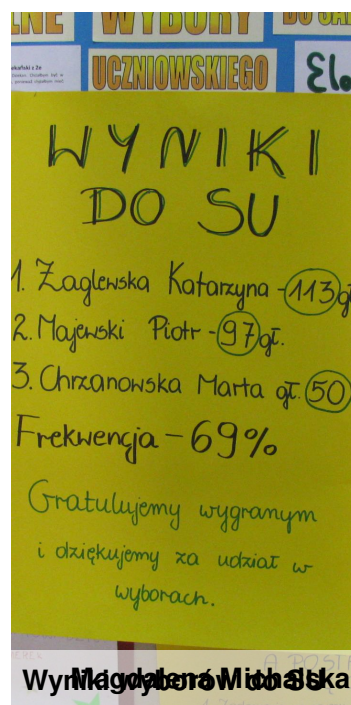 WYBORY
DO SA
UCZNIOWSKIEGO
WYNIKI
DO SU
1. Żaglewska Katarzyna - 113 gł
2. Majewski Piotr - 97 gł.
3. Chrzanowska Marta gł. 50
Frekwencja - 69%
Gratulujemy wygranym
i dziękujemy za udział w
wyborach.
Wyniki wyborów do SU
Magdalena Michalska